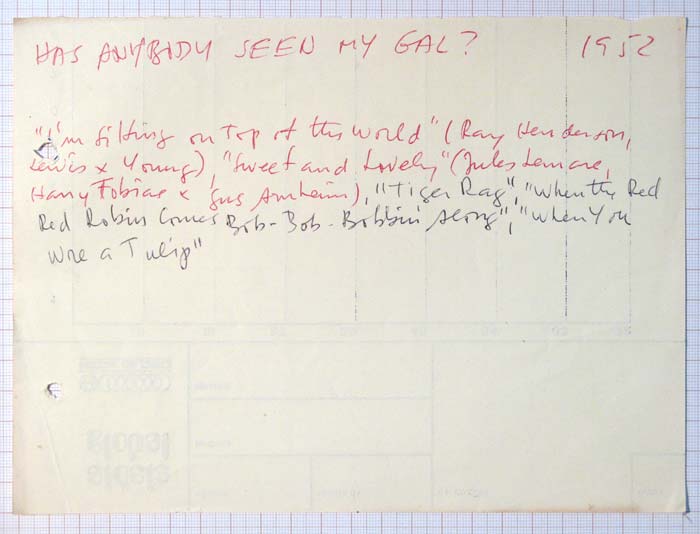 HAS ANYBODY SEEN MY GAL? 1952
"I'm sitting on Top of the World" (Ray Henderson,
Lewis x Young), "Sweet and Lovely" (Jules Lemare,
Harry Tobias x Gus Arnheim), "Tiger Rag", "When the Red
Red Robin Comes Bob-Bob-Bobbin' Along", "When You
Wore a Tulip"